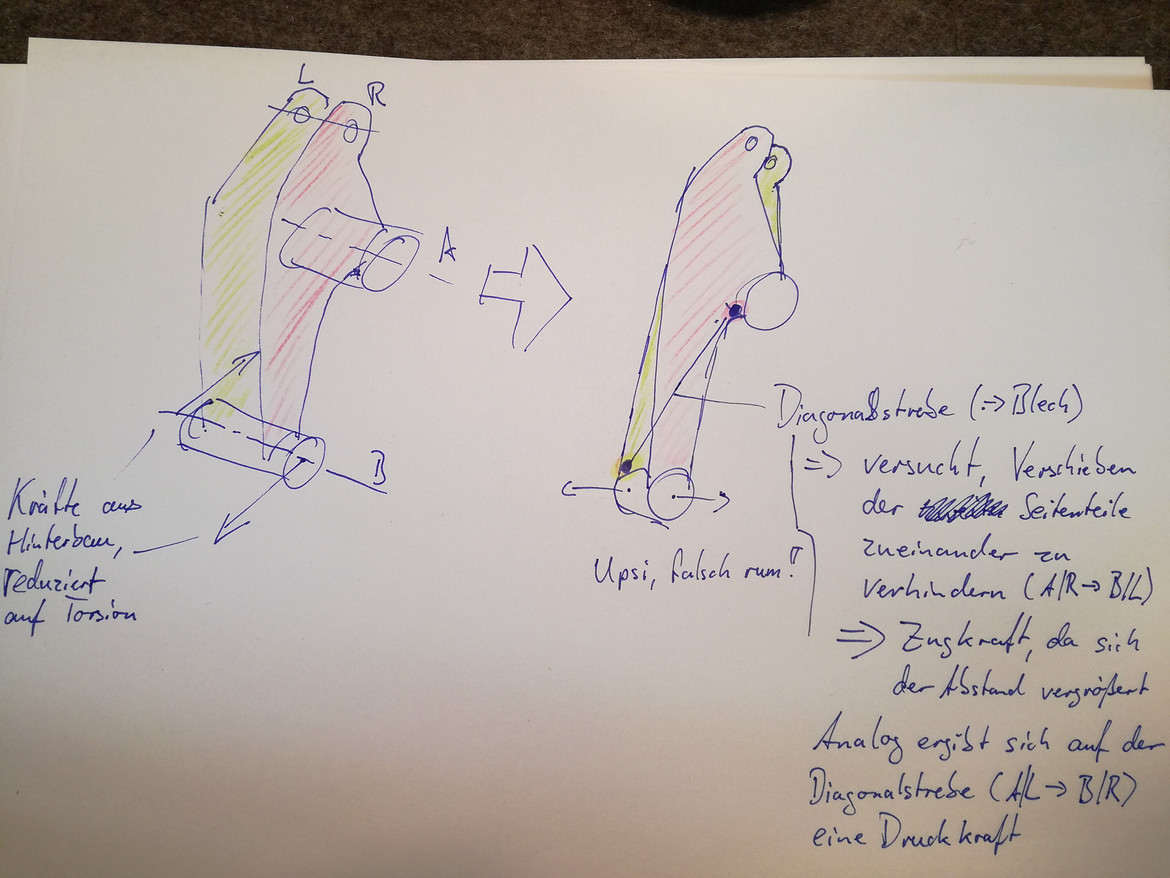 L
R
A
B
Kräfte aus
Hinterbau,
reduziert
auf Torsion
Upsi, falsch rum!
Diagonalstrebe (-> Blech)
=> versucht, Verschieben
der Seitenteile
zueinander zu
verhindern (A/R -> B/L)
=> Zugkraft, da sich
der Abstand vergrößert
Analog ergibt sich auf der
Diagonalstrebe (A/L -> B/R)
eine Druckkraft